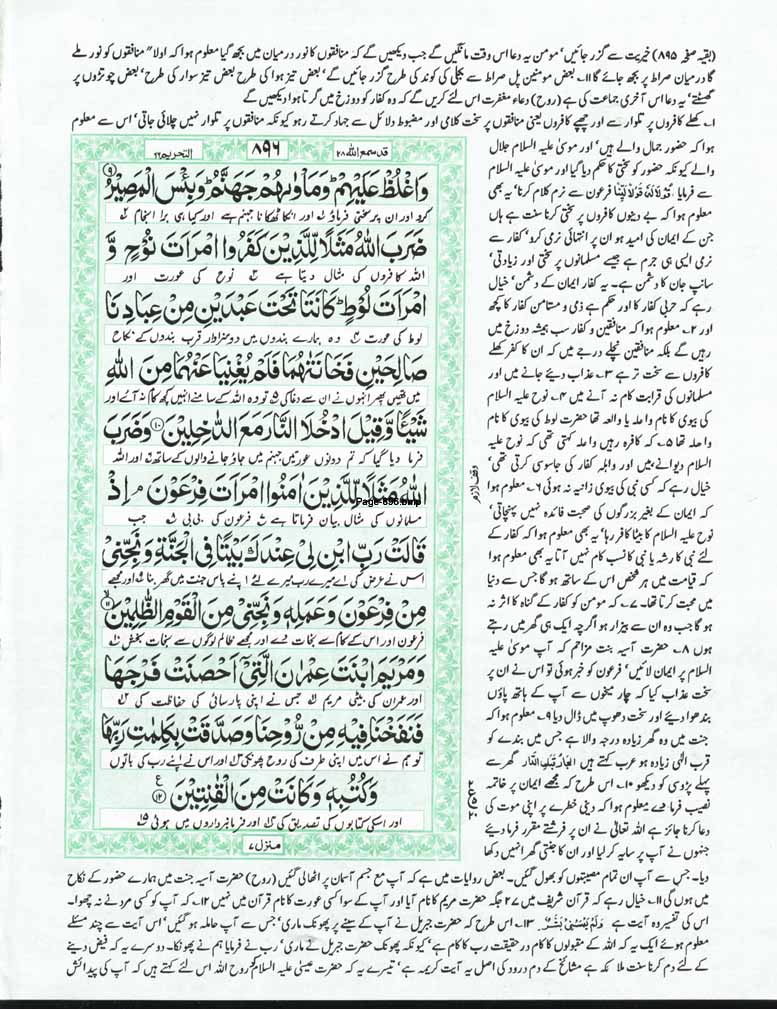 (بقیہ صفحہ ۸۹۵) خیریت سے گزر جائیں' مومن یہ دعا اس وقت مانگیں گے جب دیکھیں گے کہ منافقوں کا نور درمیان میں بجھ گیا معلوم ہوا کہ اولاً" منافقوں کو نور ملے
گا درمیان صراط پر بجھ جائے گا ۱۱۔ بعض مومنین پل صراط سے بجلی کی کوند کی طرح گزر جائیں گے' بعض تیز ہوا کی طرح بعض تیز سوار کی طرح' بعض چوتڑوں پر
گھسٹتے' یہ دعا اس آخری جماعت کی ہے (روح) دعاء مغفرت اس لئے کریں گے کہ وہ کفار کو دوزخ میں گرتا ہوا دیکھیں گے
۱۔ کھلے کافروں پر تلوار سے اور چھپے کافروں یعنی منافقوں پر سخت کلامی اور مضبوط دلائل سے جہاد کرتے رہو کیونکہ منافقوں پر تلوار نہیں چلائی جاتی' اس سے معلوم
ہوا کہ حضور جمال والے ہیں' اور موسیٰ علیہ السلام جلال
والے کیونکہ حضور کو سختی کا حکم دیا گیا اور موسیٰ علیہ السلام
سے فرمایا فرعون سے نرم کلام کرنا' یہ بھی
معلوم ہوا کہ بے دینوں کافروں پر سختی کرنا سنت ہے ہاں
جن کے ایمان کی امید ہو ان پر انتہائی نرمی کرو' کفار سے
نرمی ایسی ہی جرم ہے جیسے مسلمانوں پر سختی اور زیادتی'
سانپ جان کا دشمن ہے۔ یہ کفار ایمان کے دشمن' خیال
رہے کہ حربی کفار کا اور حکم ہے ذمی و مستامن کفار کا کچھ
اور ۲۔ معلوم ہوا کہ منافقین و کفار سب ہمیشہ دوزخ میں
رہیں گے بلکہ منافقین نچلے درجے میں کہ ان کا کفر کھلے
کافروں سے سخت تر ہے ۳۔ عذاب دیئے جانے میں اور
مسلمانوں کی قرابت کام نہ آنے میں ۴۔ نوح علیہ السلام
کی بیوی کا نام واعلہ یا والعہ تھا حضرت لوط کی بیوی کا نام
واہلہ تھا ۵۔ کہ کافرہ رہیں واعلہ کہتی تھی کہ نوح علیہ
السلام دیوانے ہیں اور واہلہ کفار کی جاسوسی کرتی تھی'
خیال رہے کہ کسی نبی کی بیوی زانیہ نہ ہوئی ۶۔ معلوم ہوا
کہ ایمان کے بغیر بزرگوں کی صحبت فائدہ نہیں پہنچاتی'
نوح علیہ السلام کا بیٹا کافر رہا' یہ بھی معلوم ہوا کہ کفار کے
لئے نبی کا رشتہ یا نبی کا نسب کام نہیں آتا یہ بھی معلوم ہوا
کہ قیامت میں ہر شخص اس کے ساتھ ہو گا جس سے دنیا
میں محبت کرتا تھا۔ ۷۔ کہ مومن کو کفار کے گناہ کا اثر نہ
ہو گا جب وہ ان سے بیزار ہو اگرچہ ایک ہی گھر میں رہتے
ہوں ۸۔ حضرت آسیہ بنت مزاحم کہ آپ موسیٰ علیہ
السلام پر ایمان لائیں' فرعون کو خبر ہوئی تو اس نے ان پر
سخت عذاب کیا کہ چار میخوں سے آپ کے ہاتھ پاؤں
بندھوا دیئے اور سخت دھوپ میں ڈال دیا ۹۔ معلوم ہوا کہ
جنت میں وہ گھر زیادہ درجہ والا ہے جس میں بندے کو
قرب الٰہی زیادہ ہو عرب کہتے ہیں گھر سے
پہلے پڑوسی کو دیکھو ۱۰۔ اس طرح کہ مجھے ایمان پر خاتمہ
نصیب فرما دے معلوم ہوا کہ دینی خطرے پر اپنی موت کی
دعا کرنا جائز ہے اللہ تعالیٰ نے ان پر فرشتے مقرر فرما دیئے
جنہوں نے آپ پر سایہ کر لیا اور ان کا جنتی گھر انہیں دکھا
قد سمع اللہ ۲۸
۸۹۶
التحریم ۶۶
وَاغْلُظْ عَلَيْهِمْ وَمَأْوٰىهُمْ جَهَنَّمُ وَبِئْسَ الْمَصِيْرُ ۹
کرو اور ان پر سختی فرماؤ اور انکا ٹھکانا جہنم ہے اور کیا ہی برا انجام
ضَرَبَ اللّٰهُ مَثَلًا لِّلَّذِيْنَ كَفَرُوا امْرَاَتَ نُوْحٍ وَّ
اللہ کافروں کی مثال دیتا ہے نوح کی عورت اور
امْرَاَتَ لُوْطٍ كَانَتَا تَحْتَ عَبْدَيْنِ مِنْ عِبَادِنَا
لوط کی عورت وہ ہمارے بندوں میں دو سزاوار قرب بندوں کے نکاح
صَالِحَيْنِ فَخَانَتٰهُمَا فَلَمْ يُغْنِيَا عَنْهُمَا مِنَ اللّٰهِ
میں تھیں پھر انہوں نے ان سے دغا کی تو وہ اللہ کے سامنے انہیں کچھ کام نہ آئے اور
شَيْئًا وَّقِيْلَ ادْخُلَا النَّارَ مَعَ الدّٰخِلِيْنَ ۱۰ وَضَرَبَ
فرما دیا گیا کہ تم دونوں عورتیں جہنم میں جاؤ جانے والوں کے ساتھ اور اللہ
اللّٰهُ مَثَلًا لِّلَّذِيْنَ اٰمَنُوا امْرَاَتَ فِرْعَوْنَ اِذْ
Page-896.bmp
مسلمانوں کی مثال بیان فرماتا ہے فرعون کی بی بی جب
قَالَتْ رَبِّ ابْنِ لِيْ عِنْدَكَ بَيْتًا فِى الْجَنَّةِ وَنَجِّنِيْ
اس نے عرض کی اے میرے رب میرے لئے اپنے پاس جنت میں گھر بنا اور مجھے
مِنْ فِرْعَوْنَ وَعَمَلِهٖ وَنَجِّنِيْ مِنَ الْقَوْمِ الظّٰلِمِيْنَ ۱۱
فرعون اور اس کے کام سے نجات دے اور مجھے ظالم لوگوں سے نجات بخش
وَمَرْيَمَ ابْنَتَ عِمْرٰنَ الَّتِيْ اَحْصَنَتْ فَرْجَهَا
اور عمران کی بیٹی مریم جس نے اپنی پارسائی کی حفاظت کی
فَنَفَخْنَا فِيْهِ مِنْ رُّوْحِنَا وَصَدَّقَتْ بِكَلِمٰتِ رَبِّهَا
تو ہم نے اس میں اپنی طرف کی روح پھونکی اور اس نے اپنے رب کی باتوں
وَكُتُبِهٖ وَكَانَتْ مِنَ الْقٰنِتِيْنَ ۱۲
اور اسکی کتابوں کی تصدیق کی اور فرمانبرداروں میں ہوئی
منزل ۷
دیا۔ جس سے آپ ان تمام مصیبتوں کو بھول گئیں۔ بعض روایات میں ہے کہ آپ مع جسم آسمان پر اٹھالی گئیں (روح) حضرت آسیہ جنت میں ہمارے حضور کے نکاح
میں ہوں گی ۱۱۔ خیال رہے کہ قرآن شریف میں ۲۷ جگہ حضرت مریم کا نام آیا اور آپ کے سوا کسی عورت کا نام قرآن میں نہیں ۱۲۔ کہ آپ کو کسی مرد نے نہ چھوا۔
اس کی تفسیر وہ آیت ہے وَلَمْ يَمْسَسْنِىْ بَشَرٌ ۱۳۔ اس طرح کہ حضرت جبریل نے آپ کے سینے پر پھونک ماری' جس سے آپ حاملہ ہو گئیں' اس آیت سے چند مسئلے
معلوم ہوئے ایک یہ کہ اللہ کے مقبولوں کا کام در حقیقت رب کا کام ہے' کیونکہ پھونک حضرت جبریل نے ماری' رب نے فرمایا ہم نے پھونکا۔ دوسرے یہ کہ فیض دینے
کے لئے دم کرنا سنت ملائکہ ہے مشائخ کے دم درود کی اصل یہ آیت کریمہ ہے' تیسرے یہ کہ حضرت عیسیٰ علیہ السلام کو روح اللہ اس لئے کہتے ہیں کہ آپ کی پیدائش